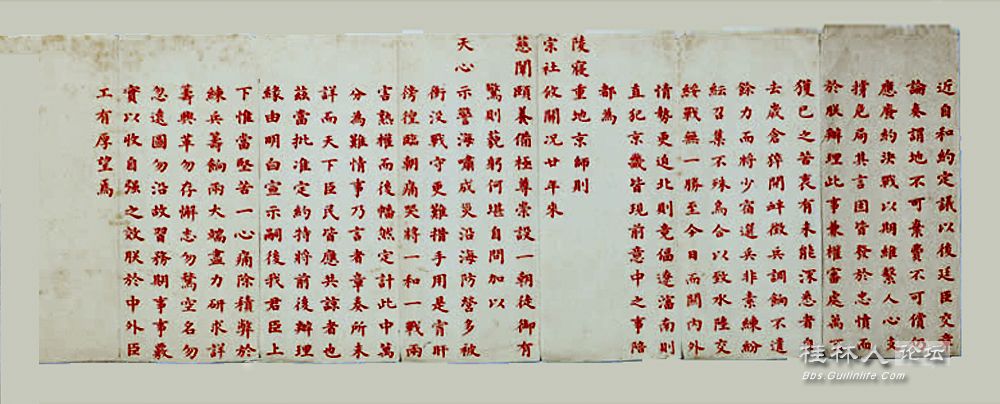 近自和約定議以後廷臣交章
論奏謂地不可棄費不可償仍
應廢約決戰以期維繫人心支
撐危局其言固皆發於忠憤而
於朕辦理此事兼權審處萬不
獲已之苦衷有未能深悉者自
去歲倉猝開衅徵兵調餉不遺
餘力而將少宿選兵非素練紛
紜召集不殊烏合以致水陸交
綏戰無一勝至今日而關內外
情勢更迫北則竟偪遼瀋南則
直犯京畿皆現前意中之事陪
都為
陵寢重地京師則
宗社攸關況廿年來
慈闈頤養備極尊崇設一朝徒御有
驚則藐躬何堪自問加以
天心示警海嘯成災沿海防營多被
衝沒戰守更難措手用是宵旰
徬徨臨朝痛哭將一和一戰兩
害熟權而後幡然定計此中萬
分為難情事乃言者章奏所未
詳而天下臣民皆應共諒者也
茲當批准定約特將前後辦理
緣由明白宣示嗣後我君臣上
下惟當堅苦一心痛除積弊於
練兵籌餉兩大端盡力研求詳
籌興革勿存懈志勿騖空名勿
忽遠圖勿沿故習務期事事覈
實以收自強之效朕於中外臣
工有厚望焉
桂林人论坛
Bbs.Guilinlife.Com